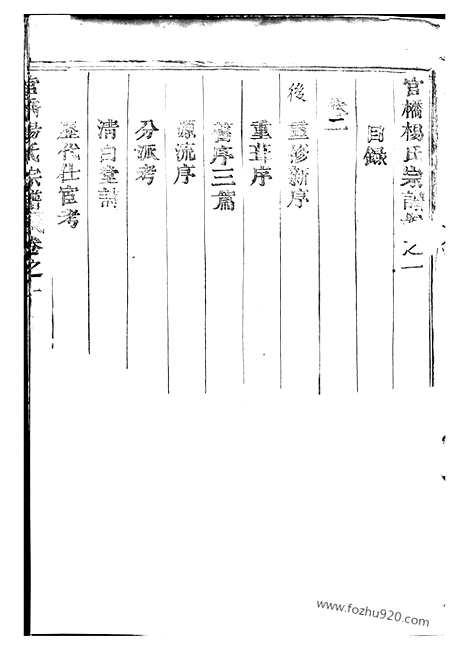 官橋楊氏宗譜卷之一
目錄
卷二
後重修新序
重葺序
舊序三篇
源流序
分派考
清白堂記
歷代仕宦考
官橋楊氏宗譜卷之一
www.fozhu920.com